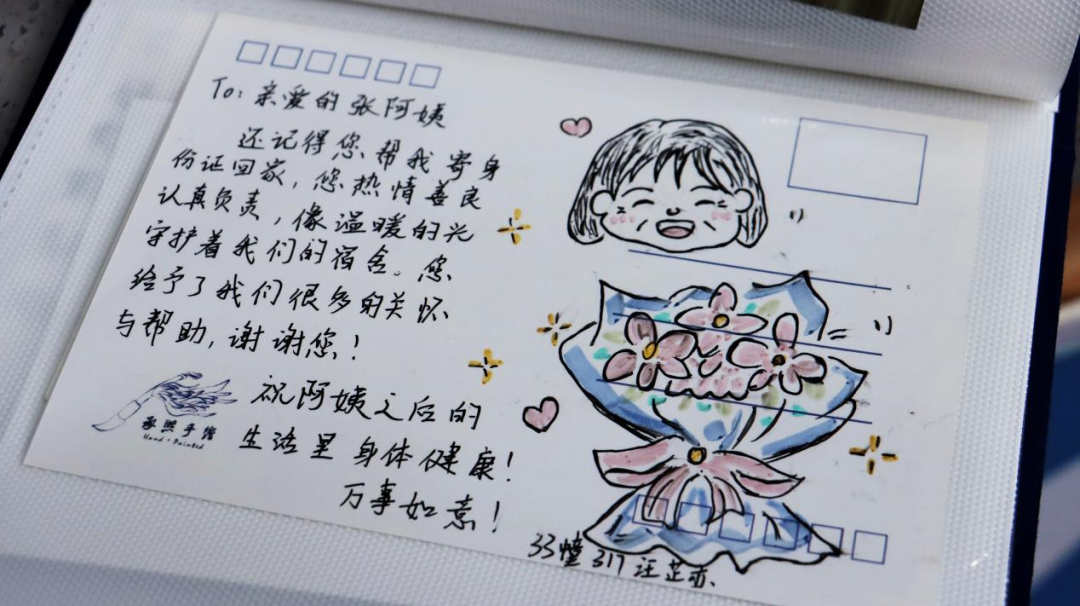 To: 亲爱的张阿姨
还记得您帮我寄身
份证回家，您热情善良
认真负责，像温暖的光
守护着我们的宿舍。您
给予了我们很多的关怀
与帮助，谢谢您！
祝阿姨之后的
生活里身体健康！
万事如意！
手绘
Hand·Painted
33幢317汪芷亦